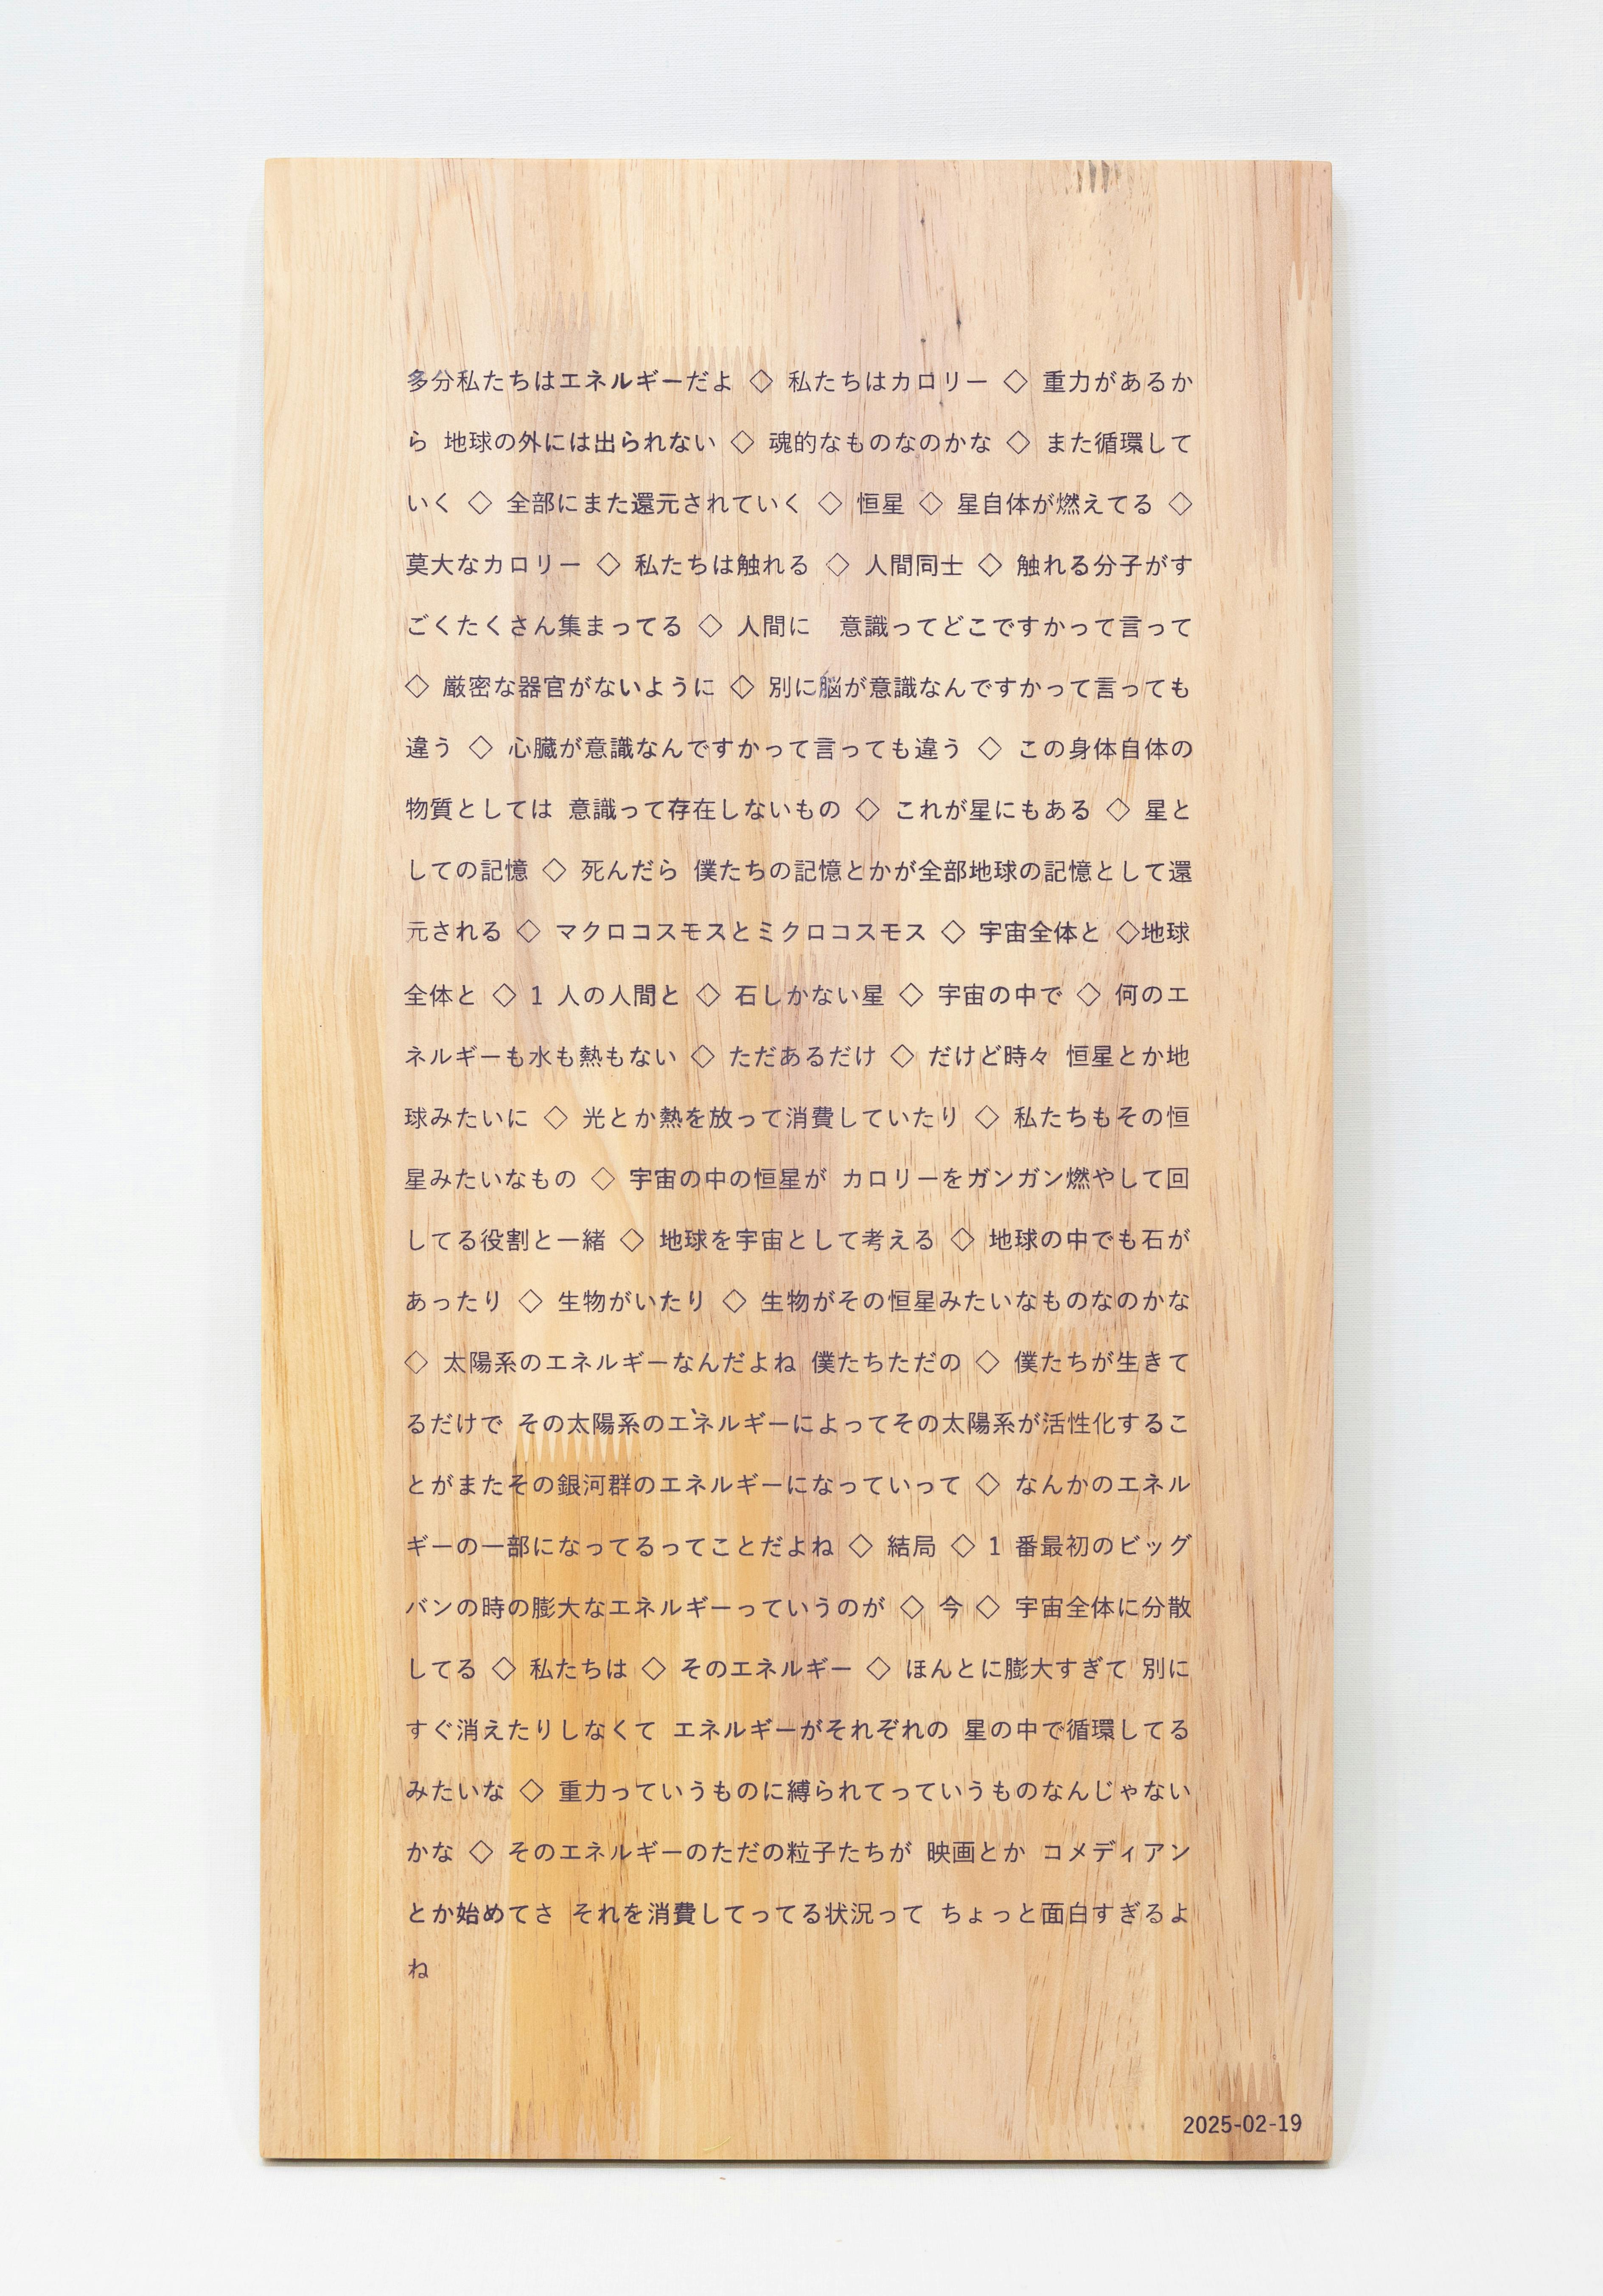 多分私たちはエネルギーだよ ◇ 私たちはカロリー ◇ 重力があるか
ら 地球の外には出られない ◇ 魂的なものなのかな ◇ また循環して
いく ◇ 全部にまた還元されていく ◇ 恒星 ◇ 星自体が燃えてる ◇
莫大なカロリー ◇ 私たちは触れる ◇ 人間同士 ◇ 触れる分子がす
ごくたくさん集まってる ◇ 人間に　意識ってどこですかって言って
◇ 厳密な器官がないように ◇ 別に脳が意識なんですかって言っても
違う ◇ 心臓が意識なんですかって言っても違う ◇ この身体自体の
物質としては 意識って存在しないもの ◇ これが星にもある ◇ 星と
しての記憶 ◇ 死んだら 僕たちの記憶とかが全部地球の記憶として還
元される ◇ マクロコスモスとミクロコスモス ◇ 宇宙全体と ◇地球
全体と ◇ 1 人の人間と ◇ 石しかない星 ◇ 宇宙の中で ◇ 何のエ
ネルギーも水も熱もない ◇ ただあるだけ ◇ だけど時々 恒星とか地
球みたいに ◇ 光とか熱を放って消費していたり ◇ 私たちもその恒
星みたいなもの ◇ 宇宙の中の恒星が カロリーをガンガン燃やして回
してる役割と一緒 ◇ 地球を宇宙として考える ◇ 地球の中でも石が
あったり ◇ 生物がいたり ◇ 生物がその恒星みたいなものなのかな
◇ 太陽系のエネルギーなんだよね 僕たちただの ◇ 僕たちが生きて
るだけで その太陽系のエネルギーによってその太陽系が活性化するこ
とがまたその銀河群のエネルギーになっていって ◇ なんかのエネル
ギーの一部になってるってことだよね ◇ 結局 ◇ 1 番最初のビッグ
バンの時の膨大なエネルギーっていうのが ◇ 今 ◇ 宇宙全体に分散
してる ◇ 私たちは ◇ そのエネルギー ◇ ほんとに膨大すぎて 別に
すぐ消えたりしなくて エネルギーがそれぞれの 星の中で循環してる
みたいな ◇ 重力っていうものに縛られてっていうものなんじゃない
かな ◇ そのエネルギーのただの粒子たちが 映画とか コメディアン
とか始めてさ それを消費してってる状況って ちょっと面白すぎるよ
ね
2025-02-19